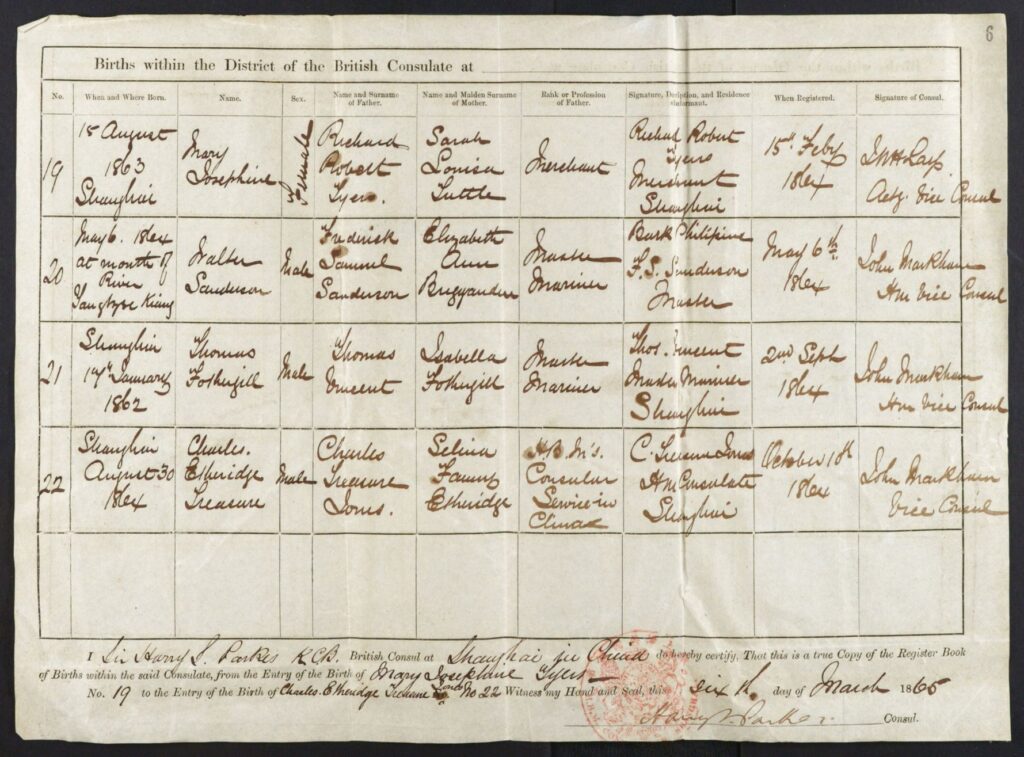 6
Births within the District of the British Consulate at
No. When and Where Born. Name. Sex. Name and Surname of Father. Name and Maiden Surname of Mother. Rank or Profession of Father. Signature, Description, and Residence of Informant. When Registered. Signature of Consul.
19 15 August 1863 Shanghai Mary Josephine Female Richard Robert Tyers. Sarah Louisa Tuttle Merchant Richard Robert Tyers Merchant Shanghai 15th Feby 1864 Actg. Vice Consul
20 May 6. 1864 at mouth of River Yangtsze Kiang Walter Sanderson Male Frederick Samuel Sanderson Elizabeth Ann Master Mariner Bark Philipine F.S. Sanderson Master May 6th 1864 John Markham HM Vice Consul
21 Shanghai 17th January 1862 Thomas Fothergill Male Thomas Vincent Isabella Fothergill Master Mariner Thos. Vincent Master Mariner Shanghai 2nd Sept 1864 John Markham HM Vice Consul
22 Shanghai August 30 1864 Charles. Etheridge Treasure Male Charles Treasure Jones. Selina Fanny Etheridge H.B.M's. Consular Service in China C. Treasure Jones HM Consulate Shanghai October 10th 1864 John Markham Vice Consul
I Sir Harry S. Parkes K.C.B. British Consul at Shanghai in China do hereby certify, That this is a true Copy of the Register Book
of Births within the said Consulate, from the Entry of the Birth of Mary Josephine Tyers
No. 19 to the Entry of the Birth of Charles. Etheridge Treasure Jones No 22 Witness my Hand and Seal, this Sixth day of March 1865
Harry S. Parkes. Consul.